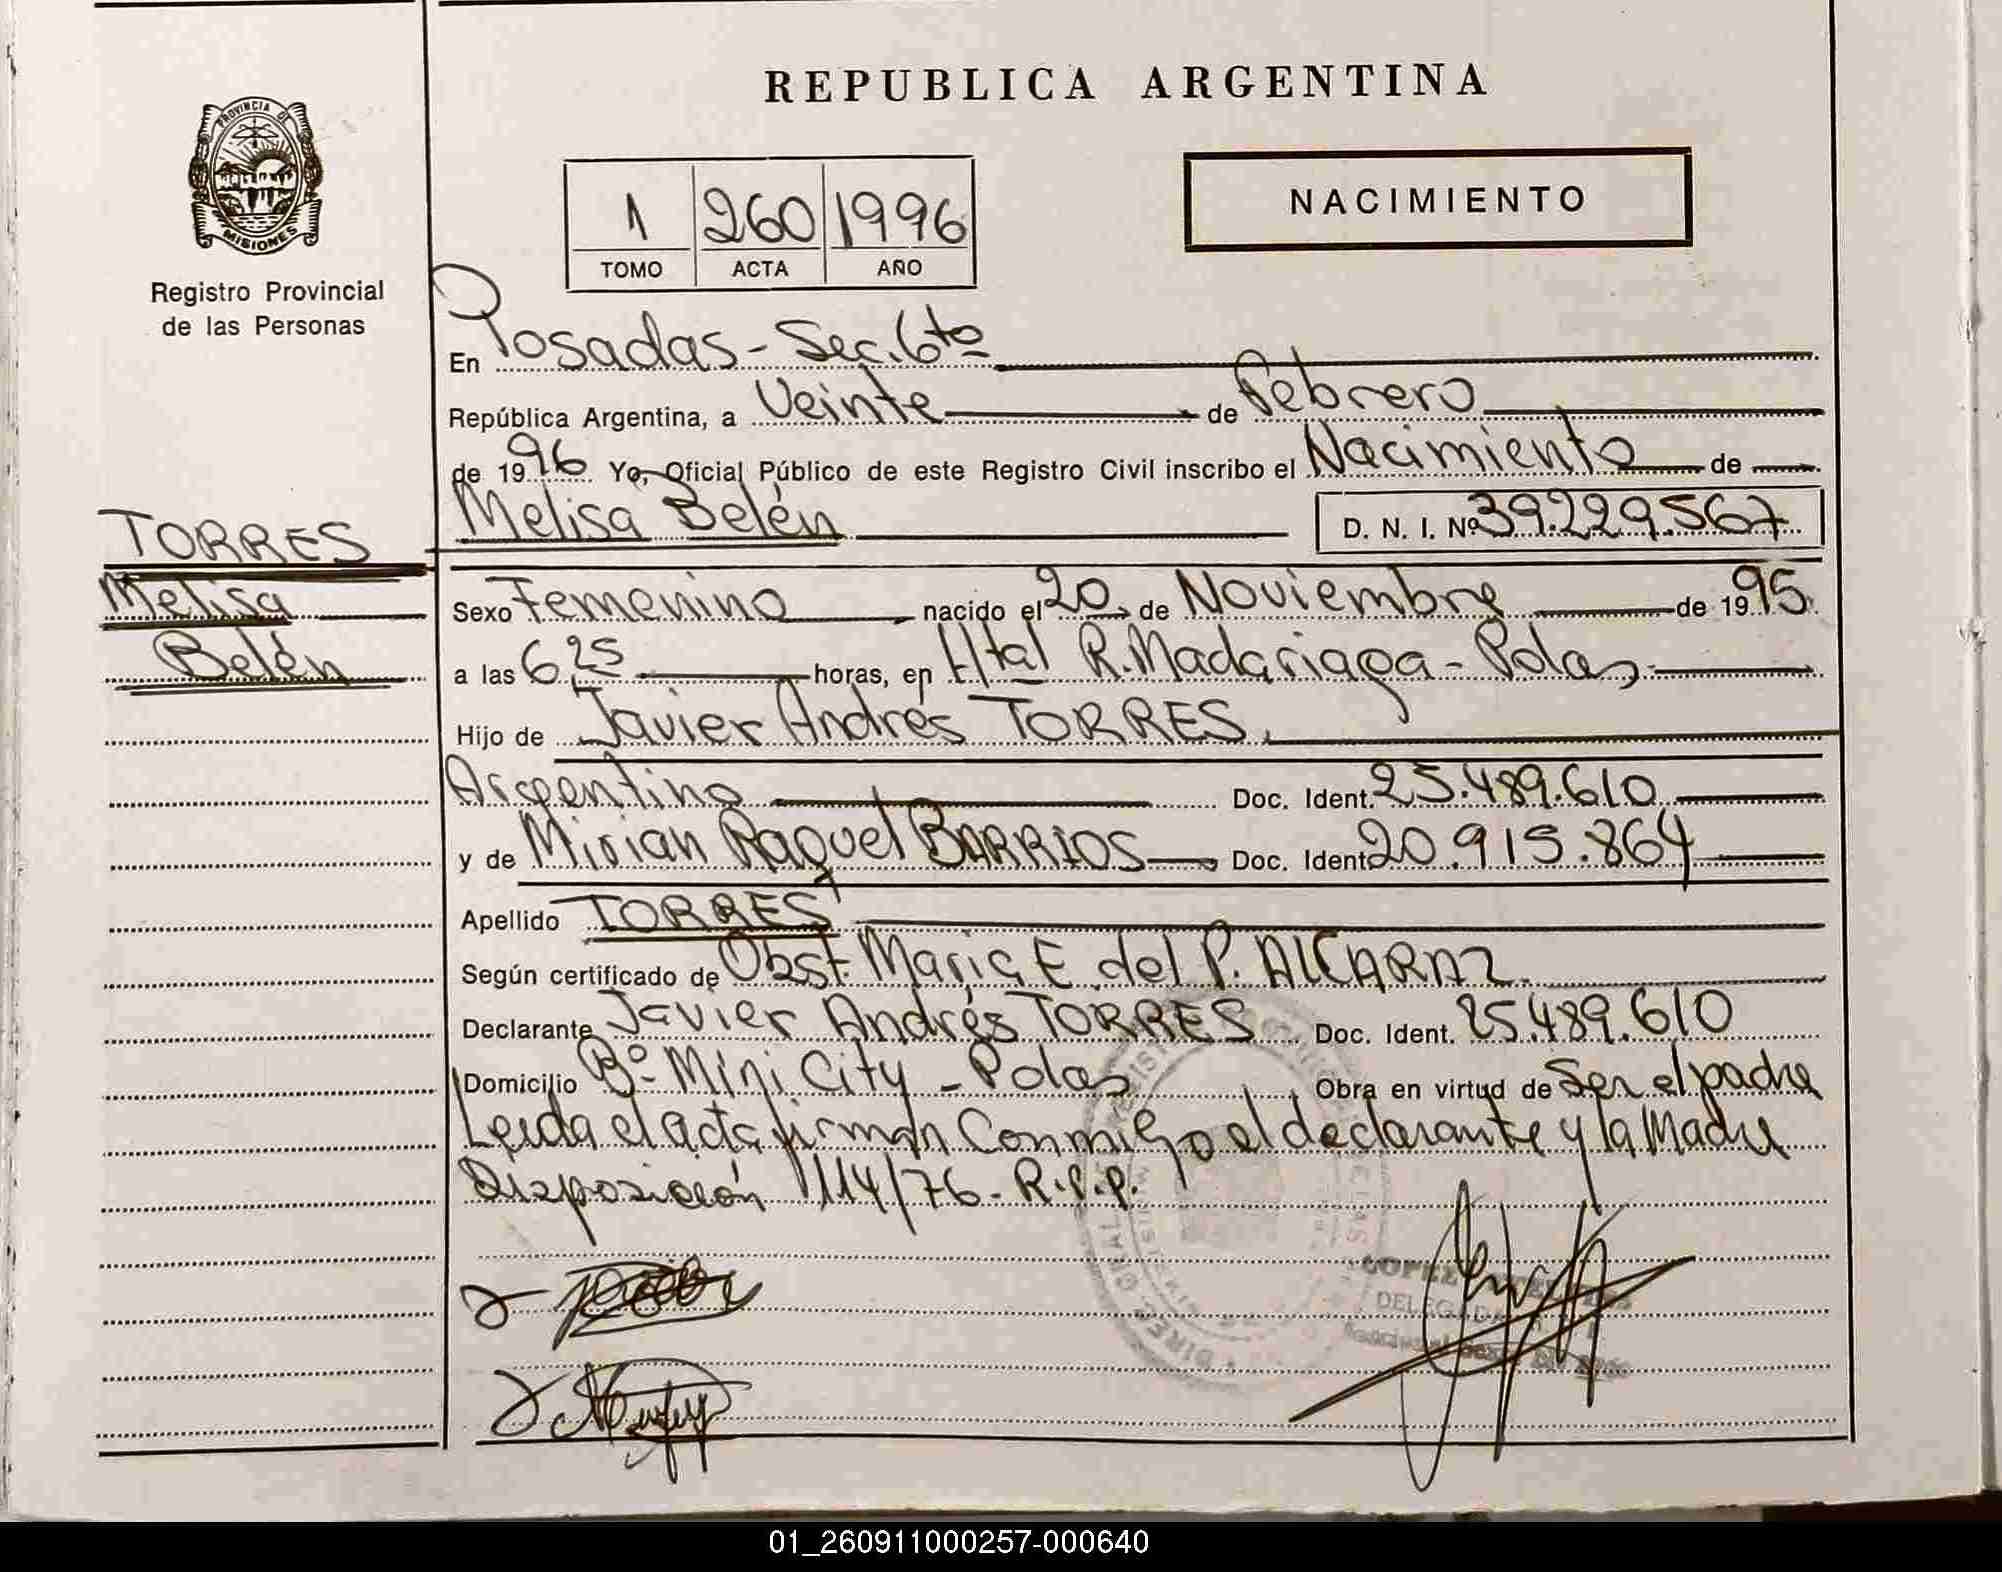 REPUBLICA ARGENTINA
PROVINCIA DE
MISIONES
Registro Provincial
de las Personas
1 260 1996
TOMO ACTA AÑO
NACIMIENTO
En Posadas - Sec. 6to
República Argentina, a Veinte de Febrero
de 1996 Yo, Oficial Público de este Registro Civil inscribo el Nacimiento de
Melisa Belén D. N. I. Nº 39.229.567
TORRES
Melisa
Belén
Sexo Femenino nacido el 20 de Noviembre de 1995
a las 6,25 horas, en Htal R. Madariaga - Pdas
Hijo de Javier Andrés TORRES,
Argentino Doc. Ident. 25.489.610
y de Mirian Raquel BARRIOS Doc. Ident. 20.915.864
Apellido TORRES
Según certificado de Obst. Maria E. del P. ALCARAZ
Declarante Javier Andrés TORRES Doc. Ident. 25.489.610
Domicilio Bº Mini City - Pdas Obra en virtud de Ser el padre
Leida el acta firman Conmigo el declarante y la Madre
Disposición 1114/76 - R.P.P.
DELEGADA
01_260911000257-000640